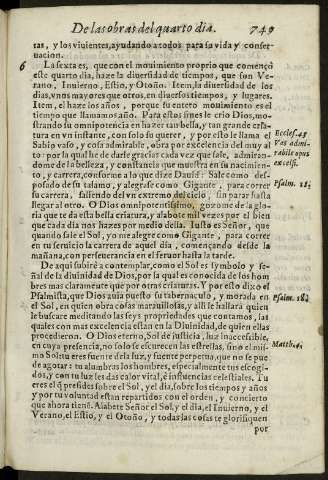 De las obras del quarto dia. 749
tas, y los viuientes, ayudando a todos para su vida y conser-
uacion.
6 La sexta es, que con el mouimiento proprio que començò
este quarto dia, haze la diuersidad de tiempos, que son Ve-
rano, Inuierno, Estio, y Otoño. Item, la diuersidad de los
dias, vnos mayores que otros, en diuersos tiempos, y lugares.
Item, el haze los años, porque su entero mouimiento es el
tiempo que llamamos año. Para estos fines le crio Dios, mo-
strando su omnipotencia en hazer tan bella, y tan grande cria-
tura en vn instante, con solo su querer, y por esto le llama el
Sabio vaso, y cosa admirable, obra por excelencia del muy al
to: por la qual he de darle gracias cada vez que sale, admiran
dome de la belleza, y constancia que muestra en su nacimien-
to, y carrera, conforme a lo que dize Dauid: Sale como des-
posado de su talamo, y alegrase como Gigante, para correr
su carrera, saliendo del vn extremo del cielo, sin parar hasta
llegar al otro. O Dios omnipotentissimo, gozome de la glo-
ria que te da esta bella criatura, y alabote mil vezes por el bien
que cada dia nos hazes por medio della. Iusto es Señor, que
quando sale el Sol, yo me alegre como Gigante, para correr
en tu seruicio la carrera de aquel dia, començando desde la
mañana, con perseuerancia en el feruor hasta la tarde.
Eccles. 43
Vas admi-
rabile opus
excelsi.
Psalm. 18.
De aqui subirè a contemplar, como el Sol es symbolo y se-
ñal de la diuinidad de Dios, por la qual es conocida de los hom
bres mas claramente que por otras criaturas. Y por esto dixo el
Psalmista, que Dios auia puesto su tabernaculo, y morada en
el Sol, en quien obra cosas marauillosas, y alli le hallarà quien
le buscare meditando las seys propriedades que contamos, las
quales con mas excelencia estan en la Diuinidad, de quien ellas
procedieron. O Dios eterno, Sol de justicia, luz inaccessible,
en cuya presencia, no solo se escurecen las estrellas, sino el mis-
mo Sol: tu eres fuente de la luz, y fuente perpetua, que no se pue
de agotar: tu alumbras los hombres, especialmente tus escogi-
dos, y con tu luz les das calor vital, è influencias celestiales. Tu
eres el q̃ presides sobre el Sol, y el dia, sobre los tiempos y años
y por tu voluntad estan repartidos con el orden, y concierto
que ahora tienẽ. Alabete Señor el Sol, y el dia, el Inuierno, y el
Verano, el Estio, y el Otoño, y todas las cosas te glorifiquen
Psalm. 18.
Matth. 4.
por